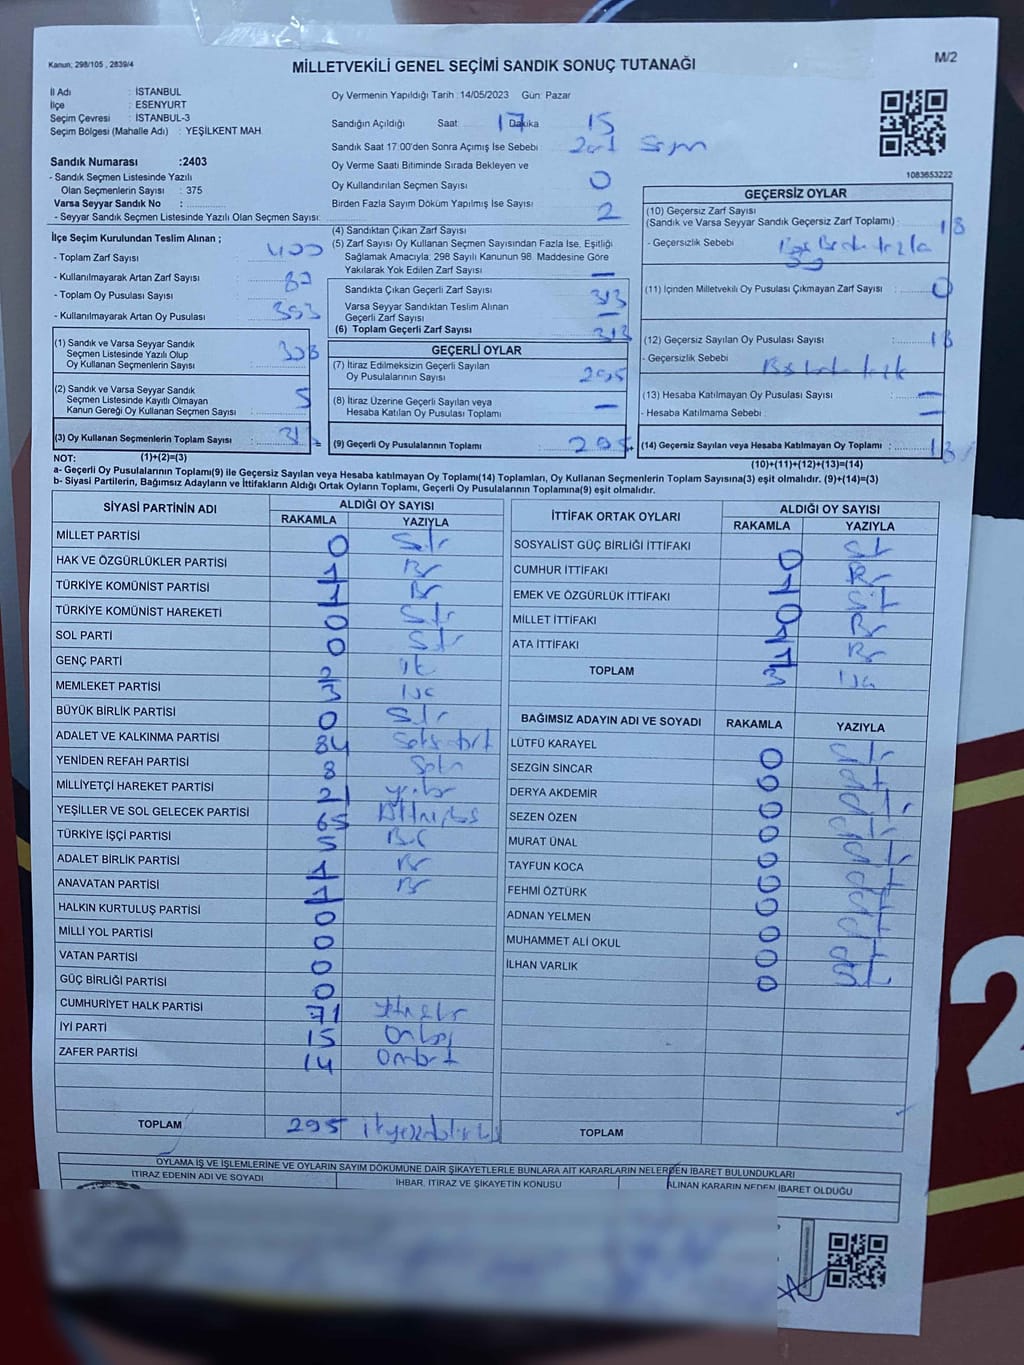 Kanun; 298/105 , 2839/4
M/2
MİLLETVEKİLİ GENEL SEÇİMİ SANDIK SONUÇ TUTANAĞI
İl Adı : İSTANBUL
İlçe : ESENYURT
Seçim Çevresi : İSTANBUL-3
Seçim Bölgesi (Mahalle Adı) : YEŞİLKENT MAH.
Sandık Numarası :2403
- Sandık Seçmen Listesinde Yazılı
Olan Seçmenlerin Sayısı : 375
Varsa Seyyar Sandık No :
- Seyyar Sandık Seçmen Listesinde Yazılı Olan Seçmen Sayısı:
Oy Vermenin Yapıldığı Tarih :14/05/2023 Gün: Pazar
Sandığın Açıldığı Saat 17 Dakika 15
Sandık Saat 17:00'den Sonra Açımış İse Sebebi
Oy Verme Saati Bitiminde Sırada Bekleyen ve
Oy Kullandırılan Seçmen Sayısı 0
Birden Fazla Sayım Döküm Yapılmış İse Sayısı 2
1083653222
İlçe Seçim Kurulundan Teslim Alınan ;
- Toplam Zarf Sayısı 400
- Kullanılmayarak Artan Zarf Sayısı 87
- Toplam Oy Pusulası Sayısı
- Kullanılmayarak Artan Oy Pusulası
(1) Sandık ve Varsa Seyyar Sandık
Seçmen Listesinde Yazılı Olup
Oy Kullanan Seçmenlerin Sayısı 308
(2) Sandık ve Varsa Seyyar Sandık
Seçmen Listesinde Kayıtlı Olmayan
Kanun Gereği Oy Kullanan Seçmen Sayısı 5
(3) Oy Kullanan Seçmenlerin Toplam Sayısı 313
(4) Sandıktan Çıkan Zarf Sayısı
(5) Zarf Sayısı Oy Kullanan Seçmen Sayısından Fazla İse, Eşitliği
Sağlamak Amacıyla; 298 Sayılı Kanunun 98. Maddesine Göre
Yakılarak Yok Edilen Zarf Sayısı —
Sandıkta Çıkan Geçerli Zarf Sayısı 313
Varsa Seyyar Sandıktan Teslim Alınan
Geçerli Zarf Sayısı —
(6) Toplam Geçerli Zarf Sayısı 313
GEÇERLİ OYLAR
(7) İtiraz Edilmeksizin Geçerli Sayılan
Oy Pusulalarının Sayısı 295
(8) İtiraz Üzerine Geçerli Sayılan veya
Hesaba Katılan Oy Pusulası Toplamı —
(9) Geçerli Oy Pusulalarının Toplamı 295
GEÇERSİZ OYLAR
(10) Geçersiz Zarf Sayısı
(Sandık ve Varsa Seyyar Sandık Geçersiz Zarf Toplamı) : 18
- Geçersizlik Sebebi
(11) İçinden Milletvekili Oy Pusulası Çıkmayan Zarf Sayısı : 0
(12) Geçersiz Sayılan Oy Pusulası Sayısı : 18
- Geçersizlik Sebebi :
(13) Hesaba Katılmayan Oy Pusulası Sayısı : —
- Hesaba Katılmama Sebebi : —
(14) Geçersiz Sayılan veya Hesaba Katılmayan Oy Toplamı : 18
NOT: (1)+(2)=(3)
(10)+(11)+(12)+(13)=(14)
a- Geçerli Oy Pusulalarının Toplamı(9) ile Geçersiz Sayılan veya Hesaba katılmayan Oy Toplamı(14) Toplamları, Oy Kullanan Seçmenlerin Toplam Sayısına(3) eşit olmalıdır. (9)+(14)=(3)
b- Siyasi Partilerin, Bağımsız Adayların ve İttifakların Aldığı Ortak Oyların Toplamı, Geçerli Oy Pusulalarının Toplamına(9) eşit olmalıdır.
SİYASİ PARTİNİN ADI ALDIĞI OY SAYISI
RAKAMLA YAZIYLA
MİLLET PARTİSİ 0 Sıfır
HAK VE ÖZGÜRLÜKLER PARTİSİ 1 Bir
TÜRKİYE KOMÜNİST PARTİSİ 1 Bir
TÜRKİYE KOMÜNİST HAREKETİ 0 Sıfır
SOL PARTİ 0 Sıfır
GENÇ PARTİ 2 iki
MEMLEKET PARTİSİ 3 üç
BÜYÜK BİRLİK PARTİSİ 0 Sıfır
ADALET VE KALKINMA PARTİSİ 84
YENİDEN REFAH PARTİSİ 8
MİLLİYETÇİ HAREKET PARTİSİ 21
YEŞİLLER VE SOL GELECEK PARTİSİ 65 Altmışbeş
TÜRKİYE İŞÇİ PARTİSİ 5
ADALET BİRLİK PARTİSİ 1 Bir
ANAVATAN PARTİSİ 1 Bir
HALKIN KURTULUŞ PARTİSİ 0
MİLLİ YOL PARTİSİ 0
VATAN PARTİSİ 0
GÜÇ BİRLİĞİ PARTİSİ 0
CUMHURİYET HALK PARTİSİ 71
İYİ PARTİ 15 Onbeş
ZAFER PARTİSİ 14
TOPLAM 295
İTTİFAK ORTAK OYLARI ALDIĞI OY SAYISI
RAKAMLA YAZIYLA
SOSYALİST GÜÇ BİRLİĞİ İTTİFAKI 0
CUMHUR İTTİFAKI 1 Bir
EMEK VE ÖZGÜRLÜK İTTİFAKI 0
MİLLET İTTİFAKI 1 Bir
ATA İTTİFAKI 1 Bir
TOPLAM 3 üç
BAĞIMSIZ ADAYIN ADI VE SOYADI RAKAMLA YAZIYLA
LÜTFÜ KARAYEL 0 Sıfır
SEZGİN SİNCAR 0
DERYA AKDEMİR 0
SEZEN ÖZEN 0
MURAT ÜNAL 0
TAYFUN KOCA 0
FEHMİ ÖZTÜRK 0
ADNAN YELMEN 0
MUHAMMET ALİ OKUL 0
İLHAN VARLIK 0
TOPLAM
OYLAMA İŞ VE İŞLEMLERİNE VE OYLARIN SAYIM DÖKÜMÜNE DAİR ŞİKAYETLERLE BUNLARA AİT KARARLARIN NELERDEN İBARET BULUNDUKLARI
İTİRAZ EDENİN ADI VE SOYADI İHBAR, İTİRAZ VE ŞİKAYETİN KONUSU ALINAN KARARIN NEDEN İBARET OLDUĞU
2